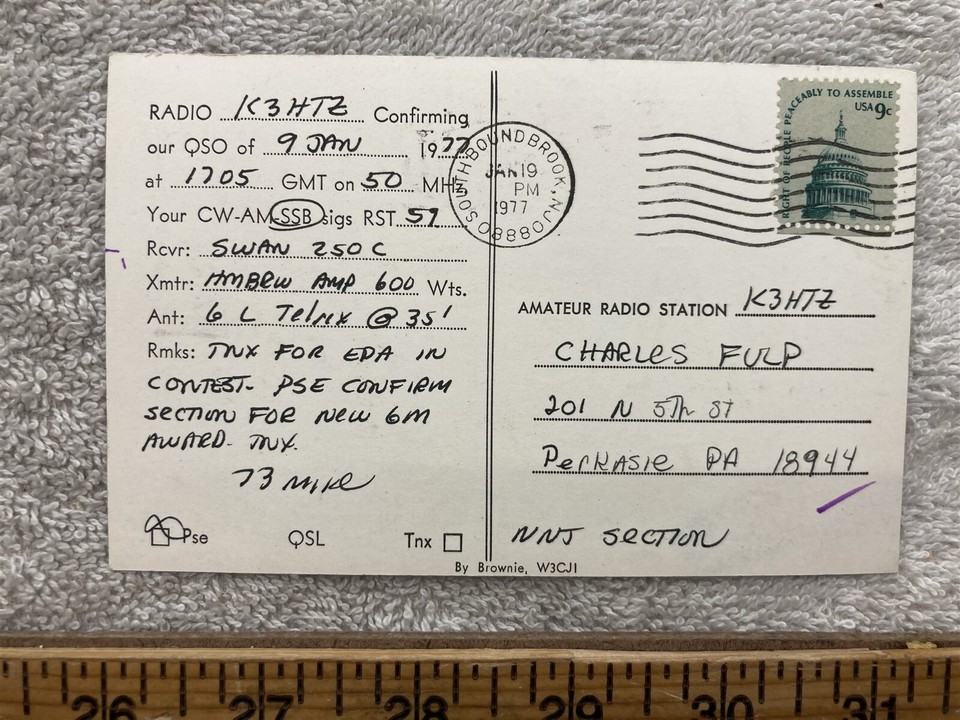 RADIO K3HTZ Confirming
our QSO of 9 JAN 1977
at 1705 GMT on 50 MHz
Your CW-AM-SSB sigs RST 57
Rcvr: SWAN 250 C
Xmtr: HMBRW AMP 600 Wts.
Ant: 6 L Telrex @ 35'
Rmks: TNX FOR EPA IN
CONTEST. PSE CONFIRM
SECTION FOR NEW 6M
AWARD. TNX.
73 MIKE
Pse QSL Tnx
By Brownie, W3CJI
SOUTH BOUND BROOK, NJ 08880
JAN 19
PM
1977
RIGHT OF PEOPLE PEACEABLY TO ASSEMBLE
USA 9c
AMATEUR RADIO STATION K3HTZ
CHARLES FULP
201 N 5Th ST
PerKASIE PA 18944
NNJ SECTION
26 27 28 29 30 31